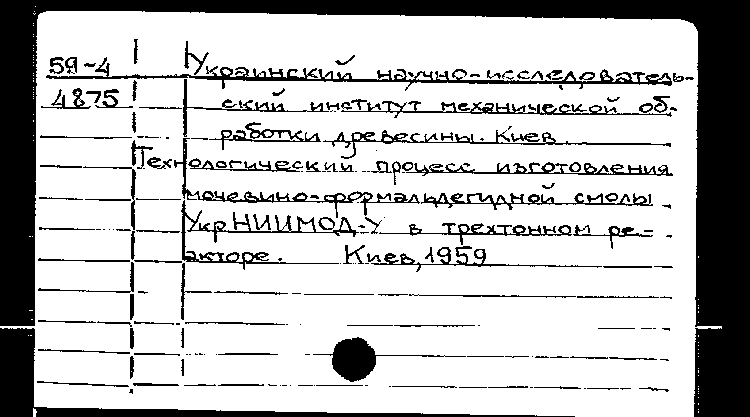 59-4 Украинский научно-исследователь-
4875 ский институт механической об-
работки древесины. Киев.
Технологический процесс изготовления
мочевино-формальдегидной смолы
УкрНИИМОД-У в трехтонном ре-
акторе. Киев, 1959